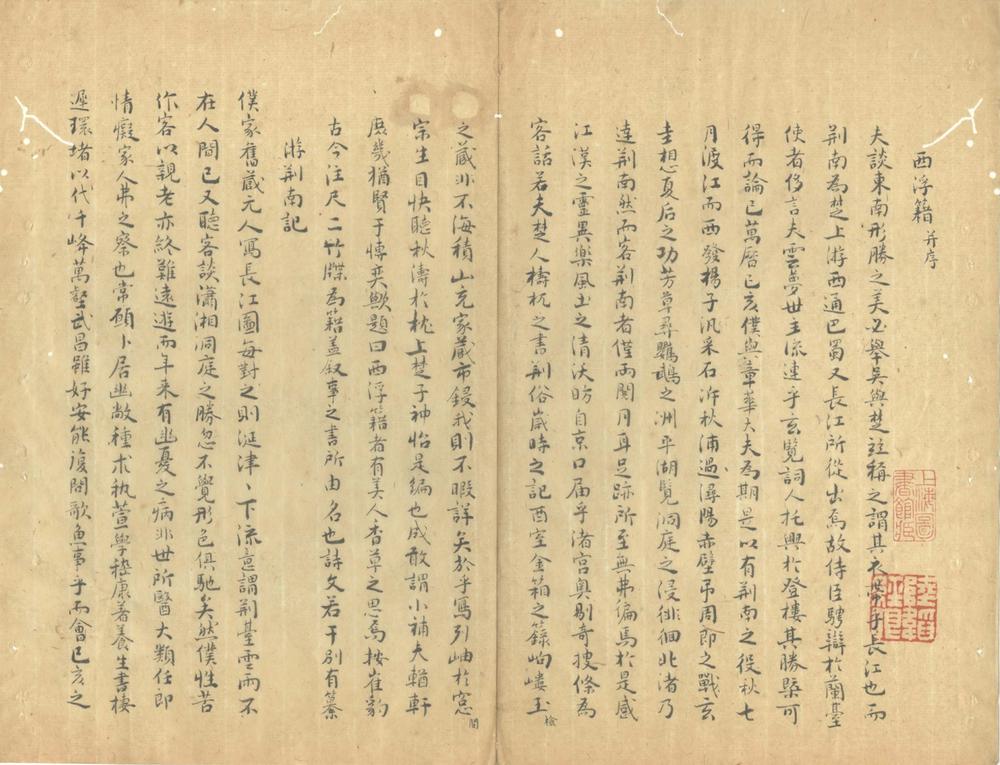 西浮籍 并序
夫談東南形勝之美必舉吳與楚竝稱之謂其衣帶乎長江也而
荆南為楚上游西通巴蜀又長江所從出焉故侍臣騁辯於蘭臺
使者侈言夫雲夢世主流連乎玄覽詞人托興於登樓其勝槩可
得而論已萬曆己亥僕與章華大夫為期是以有荆南之役秋七
月渡江而西發揚子汎采石泝秋浦過潯陽赤壁吊周郎之戰玄
圭想夏后之功芳草尋鸚鵡之洲平湖覽洞庭之浸徘徊北渚乃
達荆南然而客荆南者僅兩閱月耳足跡所至無弗徧焉於是感
江漢之靈異樂風土之清汰昉自京口届乎渚宮奧剔奇搜條為
客話若夫楚人檮杌之書荆俗歲時之記酉室金箱之籙岣嶁玉檢
之藏非不海積山充家蔵市鋟我則不暇詳矣於乎寫列岫於窓間
宗生目快聽秋濤於枕上楚子神怡是編也成敢謂小補夫輶軒
庶幾猶賢于愽奕歟題曰西浮籍者有美人香草之思焉按崔豹
古今注尺二竹牒為籍盖叙事之書所由名也詩文若干别有纂
游荆南記
僕家舊蔵元人寫長江圖每對之則涎津、下流意謂荆臺雲雨不
在人間已又聽客談瀟湘洞庭之勝忽不覺形色俱馳矣然僕性苦
作客以親老亦終難遠遊而年来有幽憂之病非世所醫大類任郎
情癡家人弗之察也常願卜居幽敞種朮執萱學嵇康著養生書棲
遲環堵以代千峰萬壑武昌雖好安能復問歌魚事乎而會己亥之